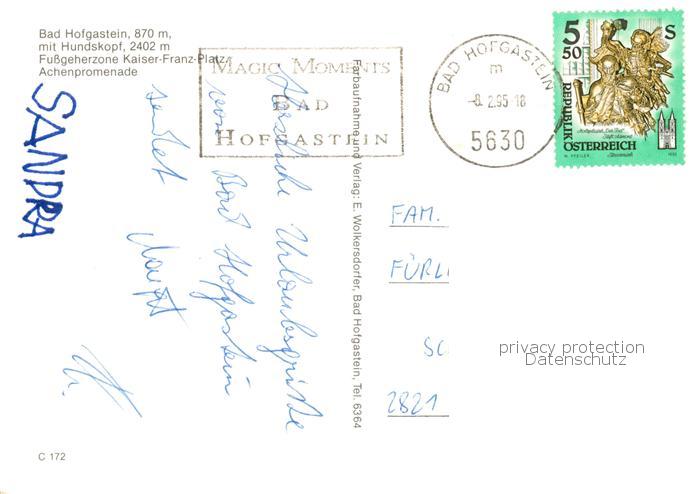 Bad Hofgastein, 870 m,
mit Hundskopf, 2402 m
Fußgeherzone Kaiser-Franz-Platz,
Achenpromenade
MAGIC MOMENTS
BAD
HOFGASTEIN
BAD HOFGASTEIN
m
-8.2.95-18
5630
5 50 S
REPUBLIK
ÖSTERREICH
SANDRA
Herzliche Urlaubsgrüße
von Bad Hofgastein
sendet
Farbaufnahme und Verlag: E. Wolkersdorfer, Bad Hofgastein, Tel. 6364
FAM.
FÜRLI
SC
2821
privacy protection
Datenschutz
C 172